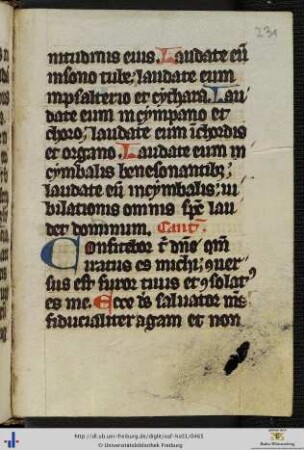 231
nitudinis eius. Laudate eū
in sono tube; laudate eum
in psalterio et cythara. Lau
date eum in tympano et
choro; laudate eum ī chordis
et organo. Laudate eum in
cymbalis benesonantibꝫ;
laudate eū in cymbalis iu
bilationis omnis spc̄ lau
det dominum. Cant̄.
Confitebor t̄ dn̄e qm̄
iratus es michi; ꝯuer
sus est furor tuus et ꝯsolatꝰ
es me. Ecce ds̄ saluator ms̄
fiducialiter agam et non
http://dl.ub.uni-freiburg.de/diglit/oaf-hs01/0465
© Universitätsbibliothek Freiburg